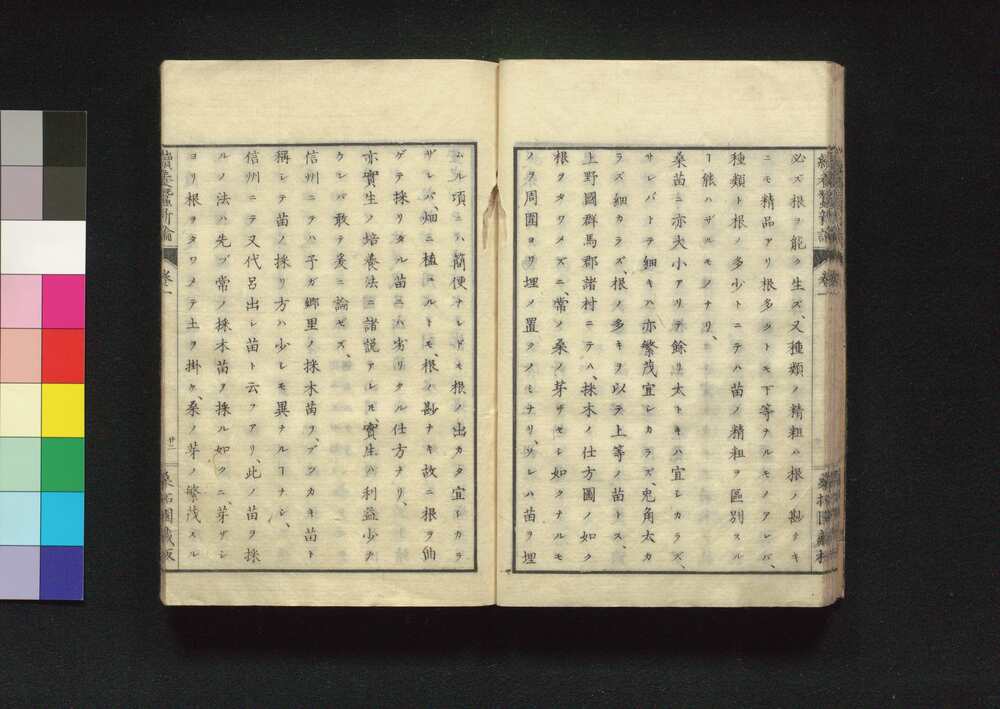 必ズ根ヲ能ク生ズ、又種類ノ精粗ハ根ノ尠キ
ニモ精品アリ根多クトモ下等ナルモノアレバ、
種類ト根ノ多少トニテハ苗ノ精粗ヲ區別スル
ヿ能ハザルモノナリ、
桑苗ニ亦大小アリテ餘リ太トキハ宜シカラズ、
サレバトテ細キハ亦繁茂宜シカラズ、兎角太カ
ラズ細カラズ、根ノ多キヲ以テ上等ノ苗トス、
上野國群馬郡諸村ニテハ、採木ノ仕方圖ノ如ク
根ヲタワメズニ、常ノ桑ノ芽ザセシ如クナルモ
ノヲ周圍ヨリ埋メ置クノミナリ、ソレハ苗ヲ埋
ムル頃ニハ簡便ナレドモ根ノ出カタ宜シカラ
ザレバ、畑ニ植ユルトモ、根ノ尠ナキ故ニ根ヲ曲
ゲテ採リタル苗ニハ劣リタル仕方ナリ、
亦實生ノ培養法ニ諸説アレ𪜈、實生ハ利益少テ
ウレバ敢テ爰ニ論ゼズ、
信州ニテハ予ガ郷里ノ採木苗ヲ、ブッカキ苗ト
稱シテ苗ノ採リ方ハ少シモ異ナルヿナシ、
信州ニテ又代呂出シ苗ト云フアリ、此ノ苗ヲ採
ルノ法ハ先ヅ常ノ採木苗ヲ採ル如クニ、芽ザシ
ヨリ根ヲタワメテ土ヲ掛ケ、桑ノ芽ノ繁茂スル
續養蠶新論
卷一
廿二
桑柘園藏板